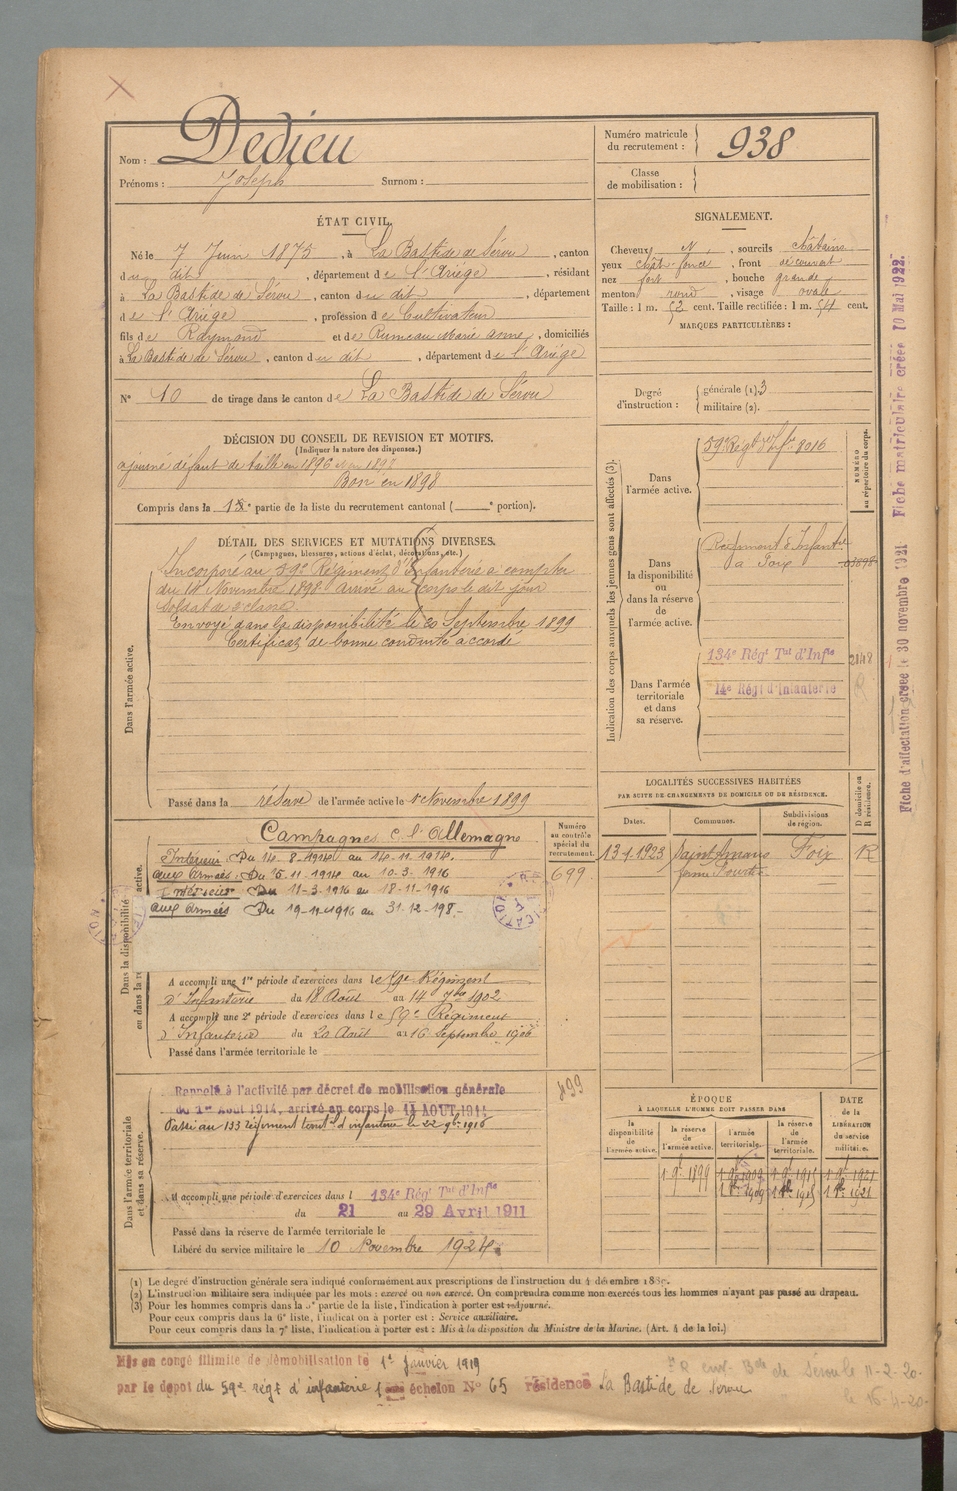 Nom : Dedieu
Prénoms : Joseph Surnom :
Numéro matricule du recrutement : 938
Classe de mobilisation :
ÉTAT CIVIL.
Né le 7 Juin 1875, à La Bastide de Sérou, canton
du dit, département de l'Ariège, résidant
à La Bastide de Sérou, canton du dit, département
de l'Ariège, profession de Cultivateur
fils de Raymond et de Rumeau Marie Anne, domiciliés
à La Bastide de Sérou, canton du dit, département de l'Ariège
N° 10 de tirage dans le canton de La Bastide de Sérou
SIGNALEMENT.
Cheveux N, sourcils châtains
yeux chât. foncé, front découvert
nez fort, bouche grande
menton rond, visage ovale
Taille : 1 m. 52 cent. Taille rectifiée : 1 m. 54 cent.
MARQUES PARTICULIÈRES :
Degré d'instruction : générale (1). 3
militaire (2).
DÉCISION DU CONSEIL DE REVISION ET MOTIFS.
(Indiquer la nature des dispenses.)
ajourné défaut de taille en 1896 et en 1897
Bon en 1898
Compris dans la partie de la liste du recrutement cantonal ( e portion).
DÉTAIL DES SERVICES ET MUTATIONS DIVERSES.
(Campagnes, blessures, actions d'éclat, décorations, etc.)
Dans l'armée active.
Incorporé au 59e Régiment d'Infanterie à compter
du 14 Novembre 1898 Arrivé au corps le dit jour
Soldat de 2e classe.
Envoyé dans la disponibilité le 20 Septembre 1899
Certificat de bonne conduite accordé
Passé dans la réserve de l'armée active le 1 Novembre 1899
Indication des corps auxquels les jeunes gens sont affectés (3).
NUMÉRO au répertoire du corps.
Dans l'armée active.
59e Régt d'Infie 8016
Dans la disponibilité ou dans la réserve de l'armée active.
Régiment d'Infanterie
à Foix
Dans l'armée territoriale et dans sa réserve.
134e Régt Tal d'Infie
14e Régt d'Infanterie
LOCALITÉS SUCCESSIVES HABITÉES
PAR SUITE DE CHANGEMENTS DE DOMICILE OU DE RÉSIDENCE.
Dates. Communes. Subdivisions de région. D domicile ou R résidence.
13-1-1923 Saint Amans Foix R
Dans la disponibilité ou dans la réserve de l'armée active.
Numéro au contrôle spécial du recrutement.
699
Campagnes c. l'Allemagne
Intérieur : Du 14-8-1914 au 14-11-1914.
aux armées : Du 15-11-1914 au 10-3-1916
Intérieur Du 11-3-1916 au 18-11-1916
aux armées Du 19-11-1916 au 31-12-198.-
A accompli une 1re période d'exercices dans le 59e Régiment
d'Infanterie du 18 Août au 14 7bre 1902
A accompli une 2e période d'exercices dans le 59e Régiment
d'Infanterie du 20 Août au 16 Septembre 1906
Passé dans l'armée territoriale le
Dans l'armée territoriale et dans sa réserve.
Rappelé à l'activité par décret de mobilisation générale
du 1er Août 1914, arrivé au corps le 14 AOUT 1914
Passé au 133 régiment territ'l d'infanterie le 22 9bre 1916
A accompli une période d'exercices dans l 134e Régt Tal d'Infie
du 21 au 29 Avril 1911
Passé dans la réserve de l'armée territoriale le
Libéré du service militaire le 10 Novembre 1924.
ÉPOQUE
À LAQUELLE L'HOMME DOIT PASSER DANS
la disponibilité de l'armée active. la réserve de l'armée active. l'armée territoriale. la réserve de l'armée territoriale. DATE de la LIBÉRATION du service militaire.
1 9bre 1899 1 9bre 1909 1 9bre 1915 1 9bre 1921
1909 1915 1921
(1) Le degré d'instruction générale sera indiqué conformément aux prescriptions de l'instruction du 4 décembre 1889.
(2) L'instruction militaire sera indiquée par les mots : exercé ou non exercé. On comprendra comme non exercés tous les hommes n'ayant pas passé au drapeau.
(3) Pour les hommes compris dans la 5e partie de la liste, l'indication à porter est : Ajourné.
Pour ceux compris dans la 6e liste, l'indication à porter est : Service auxiliaire.
Pour ceux compris dans la 7e liste, l'indication à porter est : Mis à la disposition du Ministre de la Marine. (Art. 4 de la loi.)
Mis en congé illimité de démobilisation le 1er Janvier 1919
par le dépot du 59e régt d'infanterie 1 échelon N° 65 résidence La Bastide de Sérou
de Sérou le 11-2-20.
le 16-4-20.
Fiche d'affectation créée le 30 novembre 1921 Fiche matriculaire créée 10 Mai 1922.